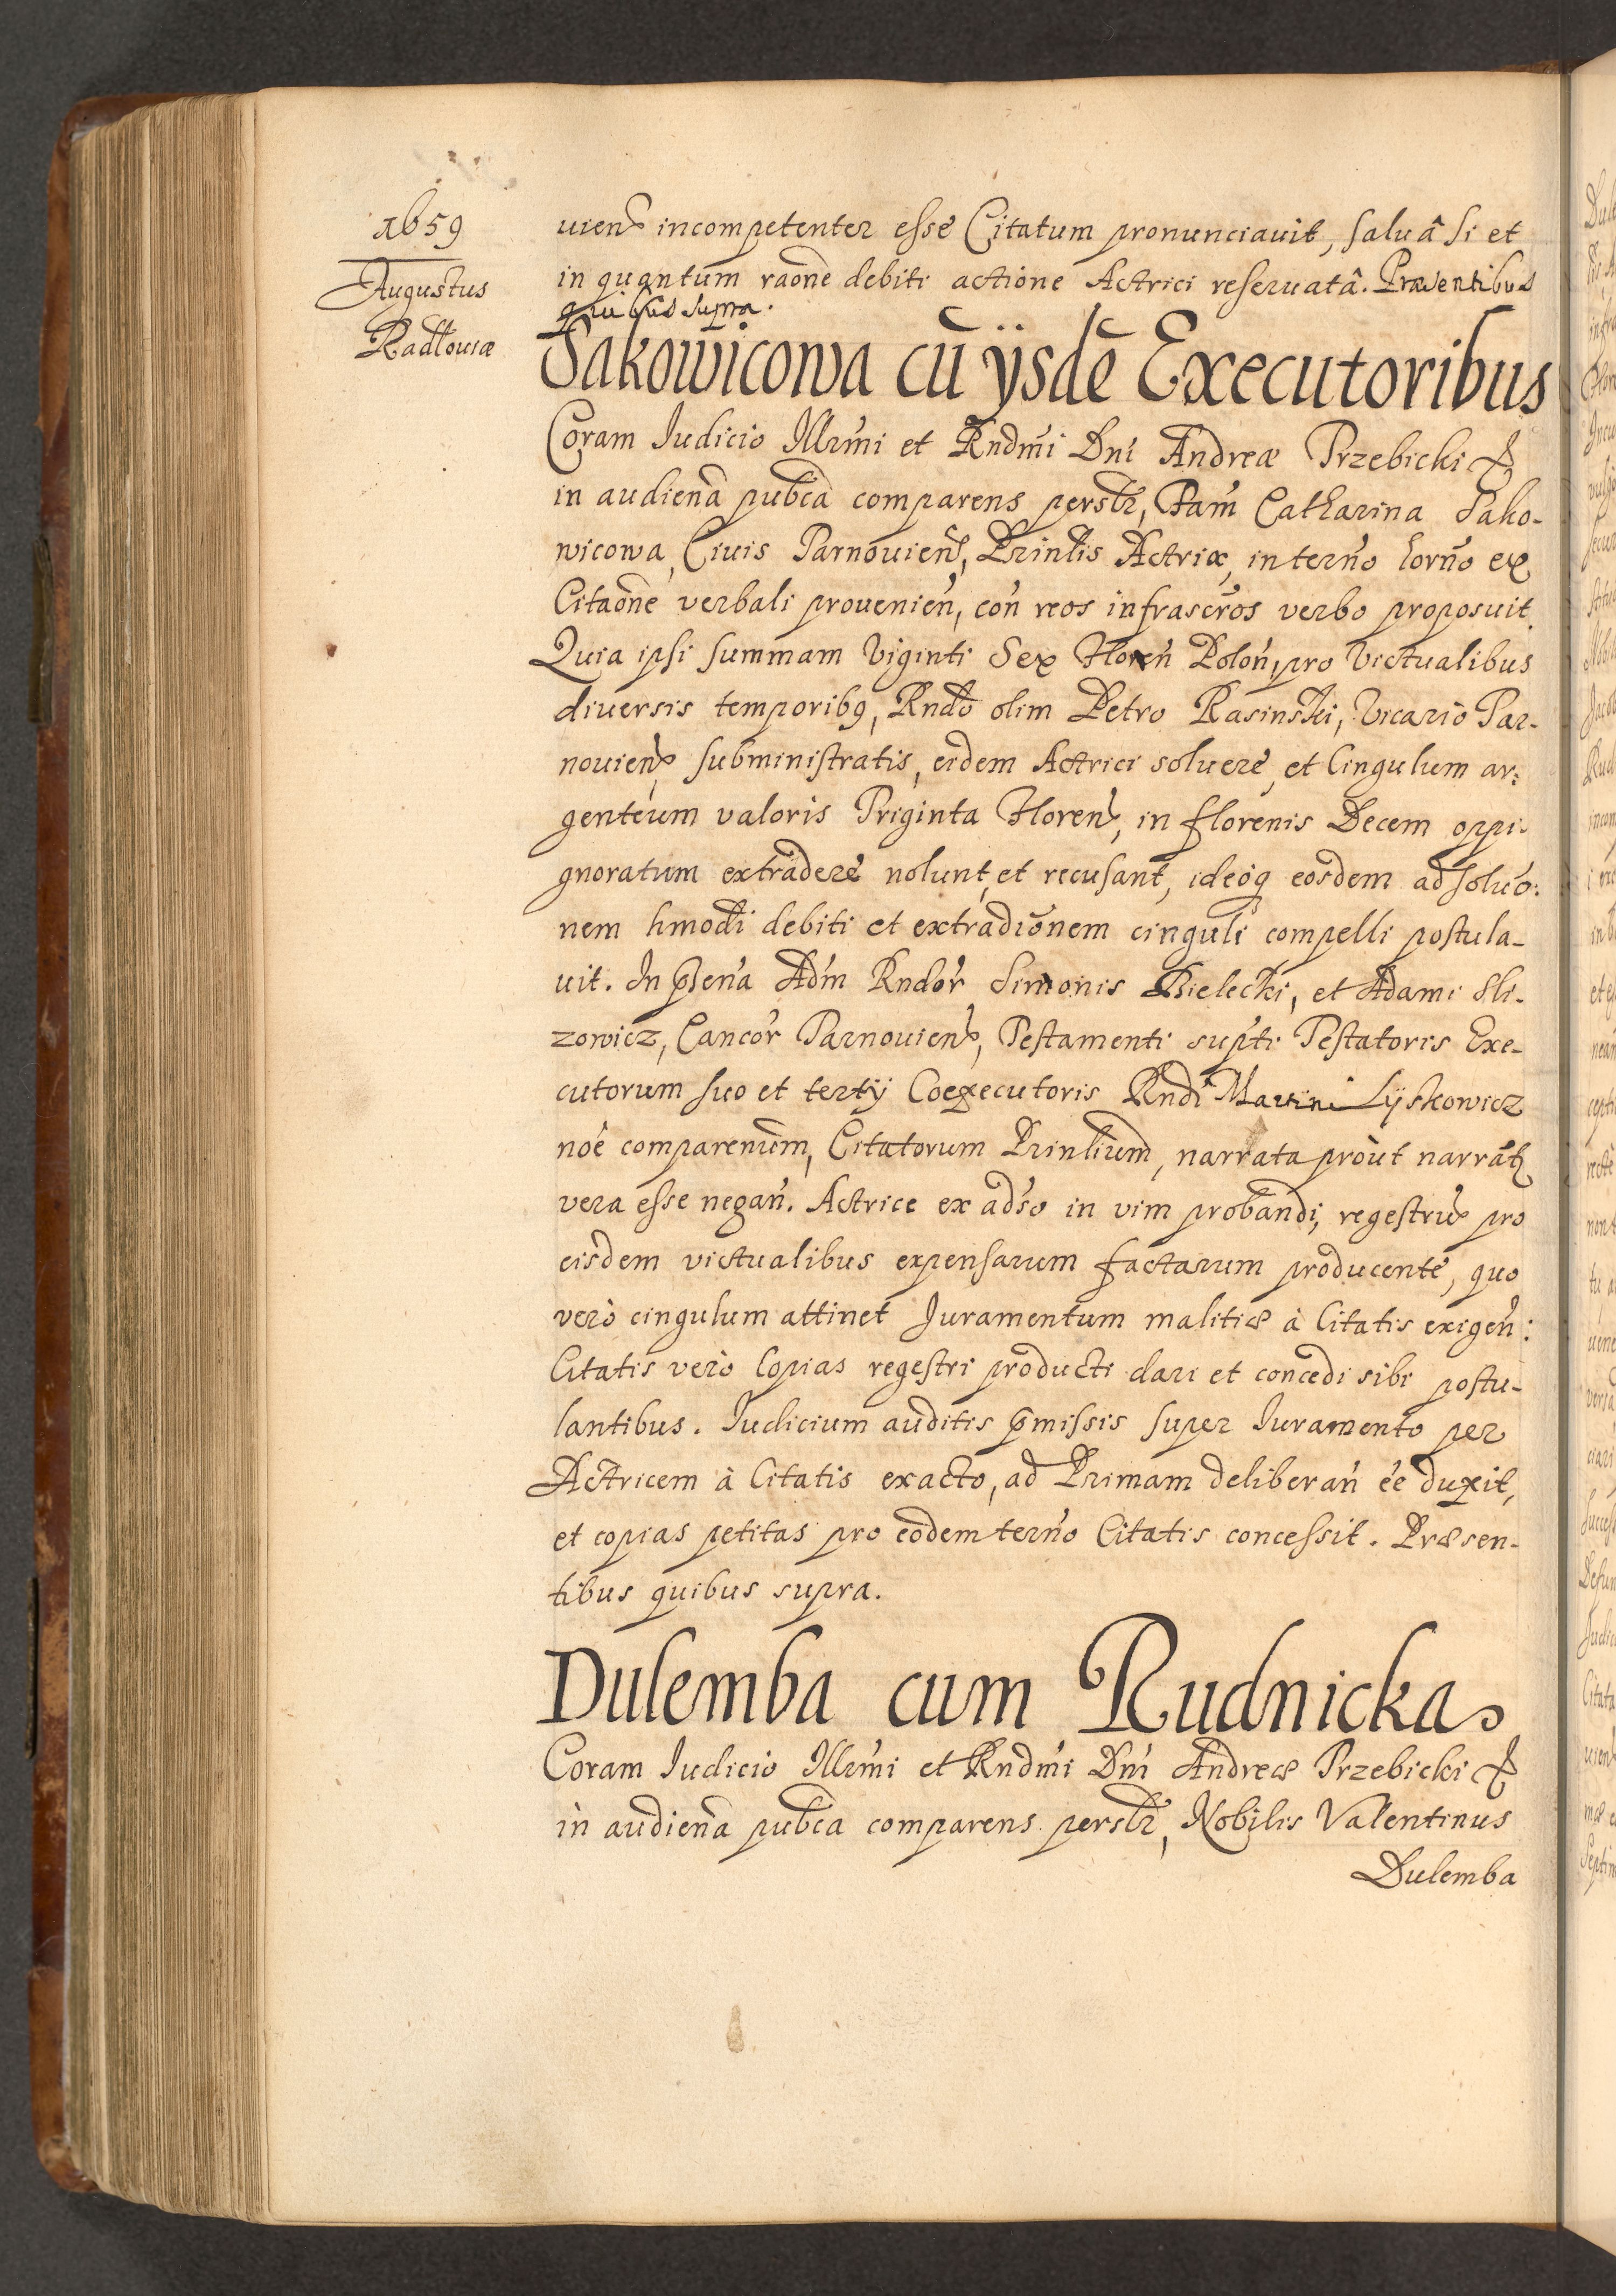 1659
Augustus
Radłouiæ
uien̄ incompetenter esse Citatum pronunciauit, saluâ si et
in quantum raōne debiti actione Actrici reseruatâ. Præsentibus
quibus supra.
Sakowicowa cū ÿsdē Executoribus
Coram Iudicio Illrm̄i et Rndm̄i Dnī Andreæ Trzebicki &
in audien̄a pub͞ca comparens persl͞r, Fam̄ Catharina Sako-
wicowa, Ciuis Tarnouien̄, Prin͞lis Actrix, in tern̄o hor̄no ex
Citaōne verbali prouenien̄, con̄ reos infrascr̄os verbo proposuit.
Quia ipsi summam Viginti Sex Floren̄ Polon̄, pro Victualibus
diuersis temporibq, Rndō olim Petro Rasinski, Vicario Tar-
nouien̄ subministratis, eidem Actrici soluere, et Cingulum ar-
genteum valoris Triginta Floren̄, in florenis Decem oppi-
gnoratum extradere nolunt, et recusant, ideoq eosdem ad soluō-
nem hmodī debiti et extradiōnem cinguli compelli postula-
uit. In p̄sen̄a Adm̄ Rndōr Simonis Bielecki, et Adami Sli-
zowicz, Cancor̄ Tarnouien̄, Testamenti sup̄ti Testatoris Exe-
cutorum suo et tertÿ Coexecutoris Rndī Martini Lÿskowicz
noē comparen̄um, Citatorum Prin͞lium, narrata proùt narrāt
vera esse negan̄. Actrice ex adūso in vim probandi, regestrū pro
eisdem victualibus expensarum factarum producente, quo
verò cingulum attinet Iuramentum malitiæ à Citatis exigen̄:
Citatis verò Copias regestri producti dari et concedi sibi postu-
lantibus. Iudicium auditis p̄missis super Iuramento per
Actricem à Citatis exacto, ad Primam deliberan̄ eē duxit,
et copias petitas pro eodem tern̄o Citatis concessit. Præsen-
tibus quibus supra.
Dulemba cum Rudnicka
Coram Iudicio Illrm̄i et Rndm̄i Dnī Andreæ Trzebicki &
in audien̄a pub͞ca comparens persl͞r, Nobilis Valentinus
Dulemba